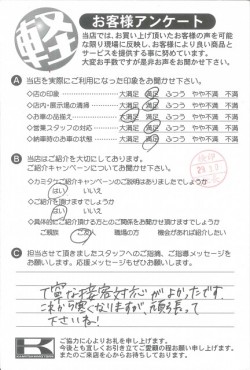 軽
お客様アンケート
当店では、お買い上げ頂いたお客様の声を可能
な限り現場に反映し、お客様により良い商品と
サービスを提供する事に努めています。
大変お手数ですが是非お声をお聞かせ下さい。
A 当店を実際にご利用になった印象をお聞かせ下さい。
◇店の印象 大満足 満足 ふつう やや不満 不満
◇店内・展示場の清掃 大満足 満足 ふつう やや不満 不満
◇お車の品揃え 大満足 満足 ふつう やや不満 不満
◇営業スタッフの対応 大満足 満足 ふつう やや不満 不満
◇納車時のお車の状態 大満足 満足 ふつう やや不満 不満
B 当店はご紹介を大切にしております。
ご紹介キャンペーンについてお聞かせ下さい。
◇カミタケご紹介キャンペーンのご説明はありましたでしょうか
はい いいえ
◇ご紹介を頂けますでしょうか
はい いいえ
◇具体的にご紹介頂ける方とのご関係をお聞かせ頂けますでしょうか
ご親族 ご友人 職場の方 機会があれば紹介したい
C 担当させて頂きましたスタッフへのご指摘、ご指導メッセージを
お願いします。応援メッセージもぜひお願いします。
丁寧な接客対応がよかったです
これから寒くなりますが頑張って
下さいね!
K
ご協力に心よりお礼を申し上げます。
今後とも宜しくお引き立てご愛顧の程お願い申し上げます。
またのご来店を心からお待ちしております。